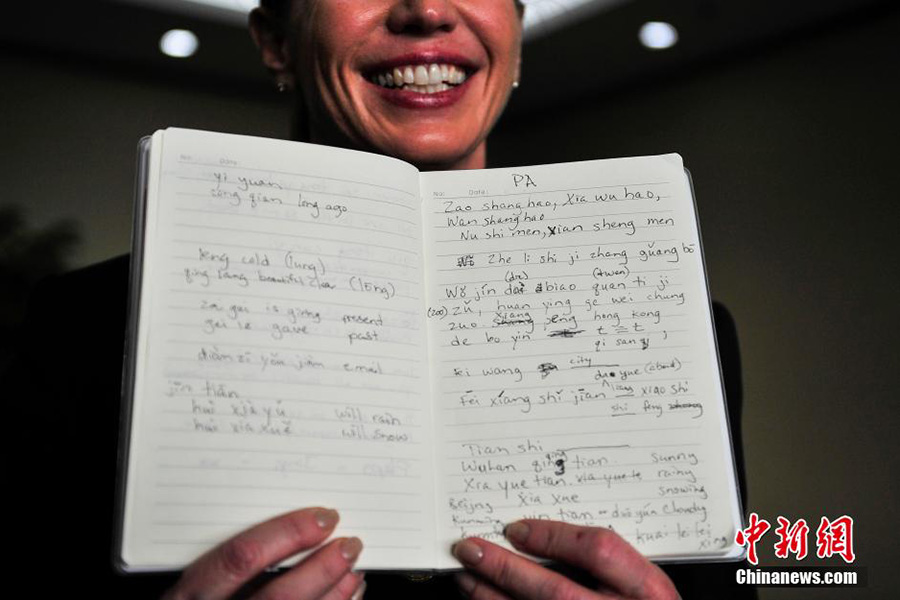 No. Date:
yi yuan
cong qian long ago
leng cold (lung)
qing lang beautiful clear (lōng)
zai gei is giving present
gei le gave past
diàn zǐ yóu jiàn email
jīn tiān
huì xià yǔ will rain
huì xià xuě will snow
No. Date:
PA
Zao shang hao, Xia wu hao,
Wan shang hao
Nu shi men, xian sheng men
Zhe li shi ji zhang guǎng bō
Wǒ jín dài biao quan ti ji
(zoo) zǔ, huan ying ge wei chung
zuo xiang eng hong kong
de bo yin
qi sang
ki wang city
duo yue (about)
Fēi xíang shí jiān liang xiao shi
shi feng
Tian shi
Wuhan qing tian sunny
Xia yue tian. xia yue te rainy
Beijng xia xue snowing
Kunming yin tian = duō yún cloudy
kuai lei fei
xing
中新网
Chinanews.com